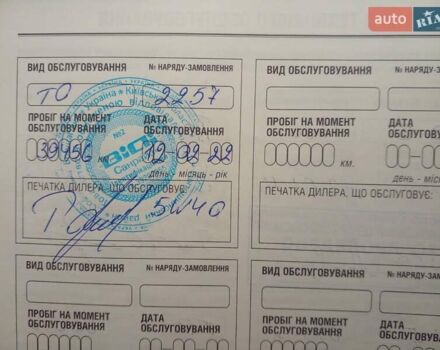 auto RIA
ВИД ОБСЛУГОВУВАННЯ № НАРЯДУ-ЗАМОВЛЕННЯ
ТО 2257
ПРОБІГ НА МОМЕНТ ОБСЛУГОВУВАННЯ ДАТА ОБСЛУГОВУВАННЯ
КМ. 12-02-22
день - місяць - рік
ПЕЧАТКА ДИЛЕРА, ЩО ОБСЛУГОВУЄ:
5W40
Україна * Київськ
№2
ВИД ОБСЛУГОВУВАННЯ № НАРЯДУ-ЗАМОВЛЕННЯ
ПРОБІГ НА МОМЕНТ ОБСЛУГОВУВАННЯ ДАТА ОБСЛУГО
КМ.
день - місяц
ПЕЧАТКА ДИЛЕРА, ЩО ОБСЛУГОВУЄ:
ВИД ОБСЛУГОВУВАННЯ № НАРЯДУ-ЗАМОВЛЕННЯ
ПРОБІГ НА МОМЕНТ ОБСЛУГОВУВАННЯ ДАТА ОБСЛУГОВУВАННЯ
ВИД ОБСЛУГОВУВАННЯ № НАРЯДУ-ЗАМОВ
ПРОБІГ НА МОМЕНТ ОБСЛУГОВУВАННЯ ДАТА ОБСЛУГО